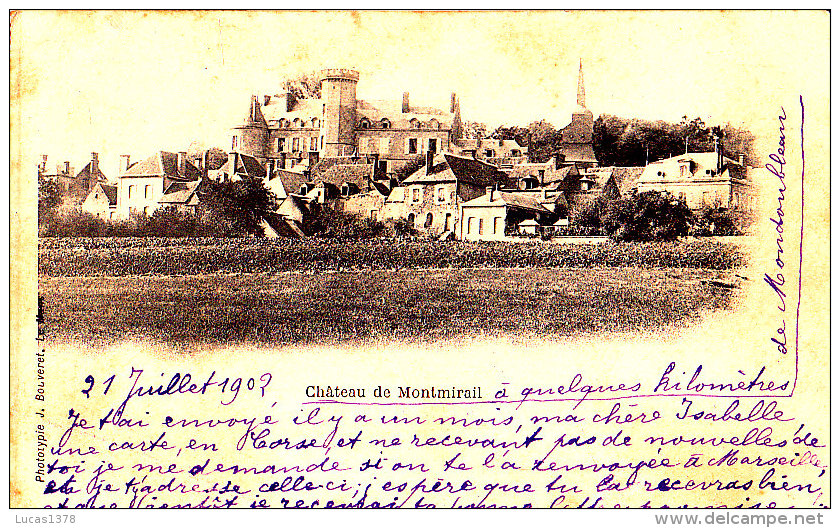 21 Juillet 1902
Château de Montmirail
à quelques kilomètres
de Mondoubleau
Je t'ai envoyé il y a un mois, ma chère Isabelle
une carte, en Corse, et ne recevant pas de nouvelles de
toi je me demande si on te l'a renvoyée à Marseille,
et je t'adresse celle-ci; j'espère que tu la recevras bien,
et que bientôt je recevrai ta bonne
Phototypie J. Bouveret, Le Mans
Lucas1378
©delcampe.net